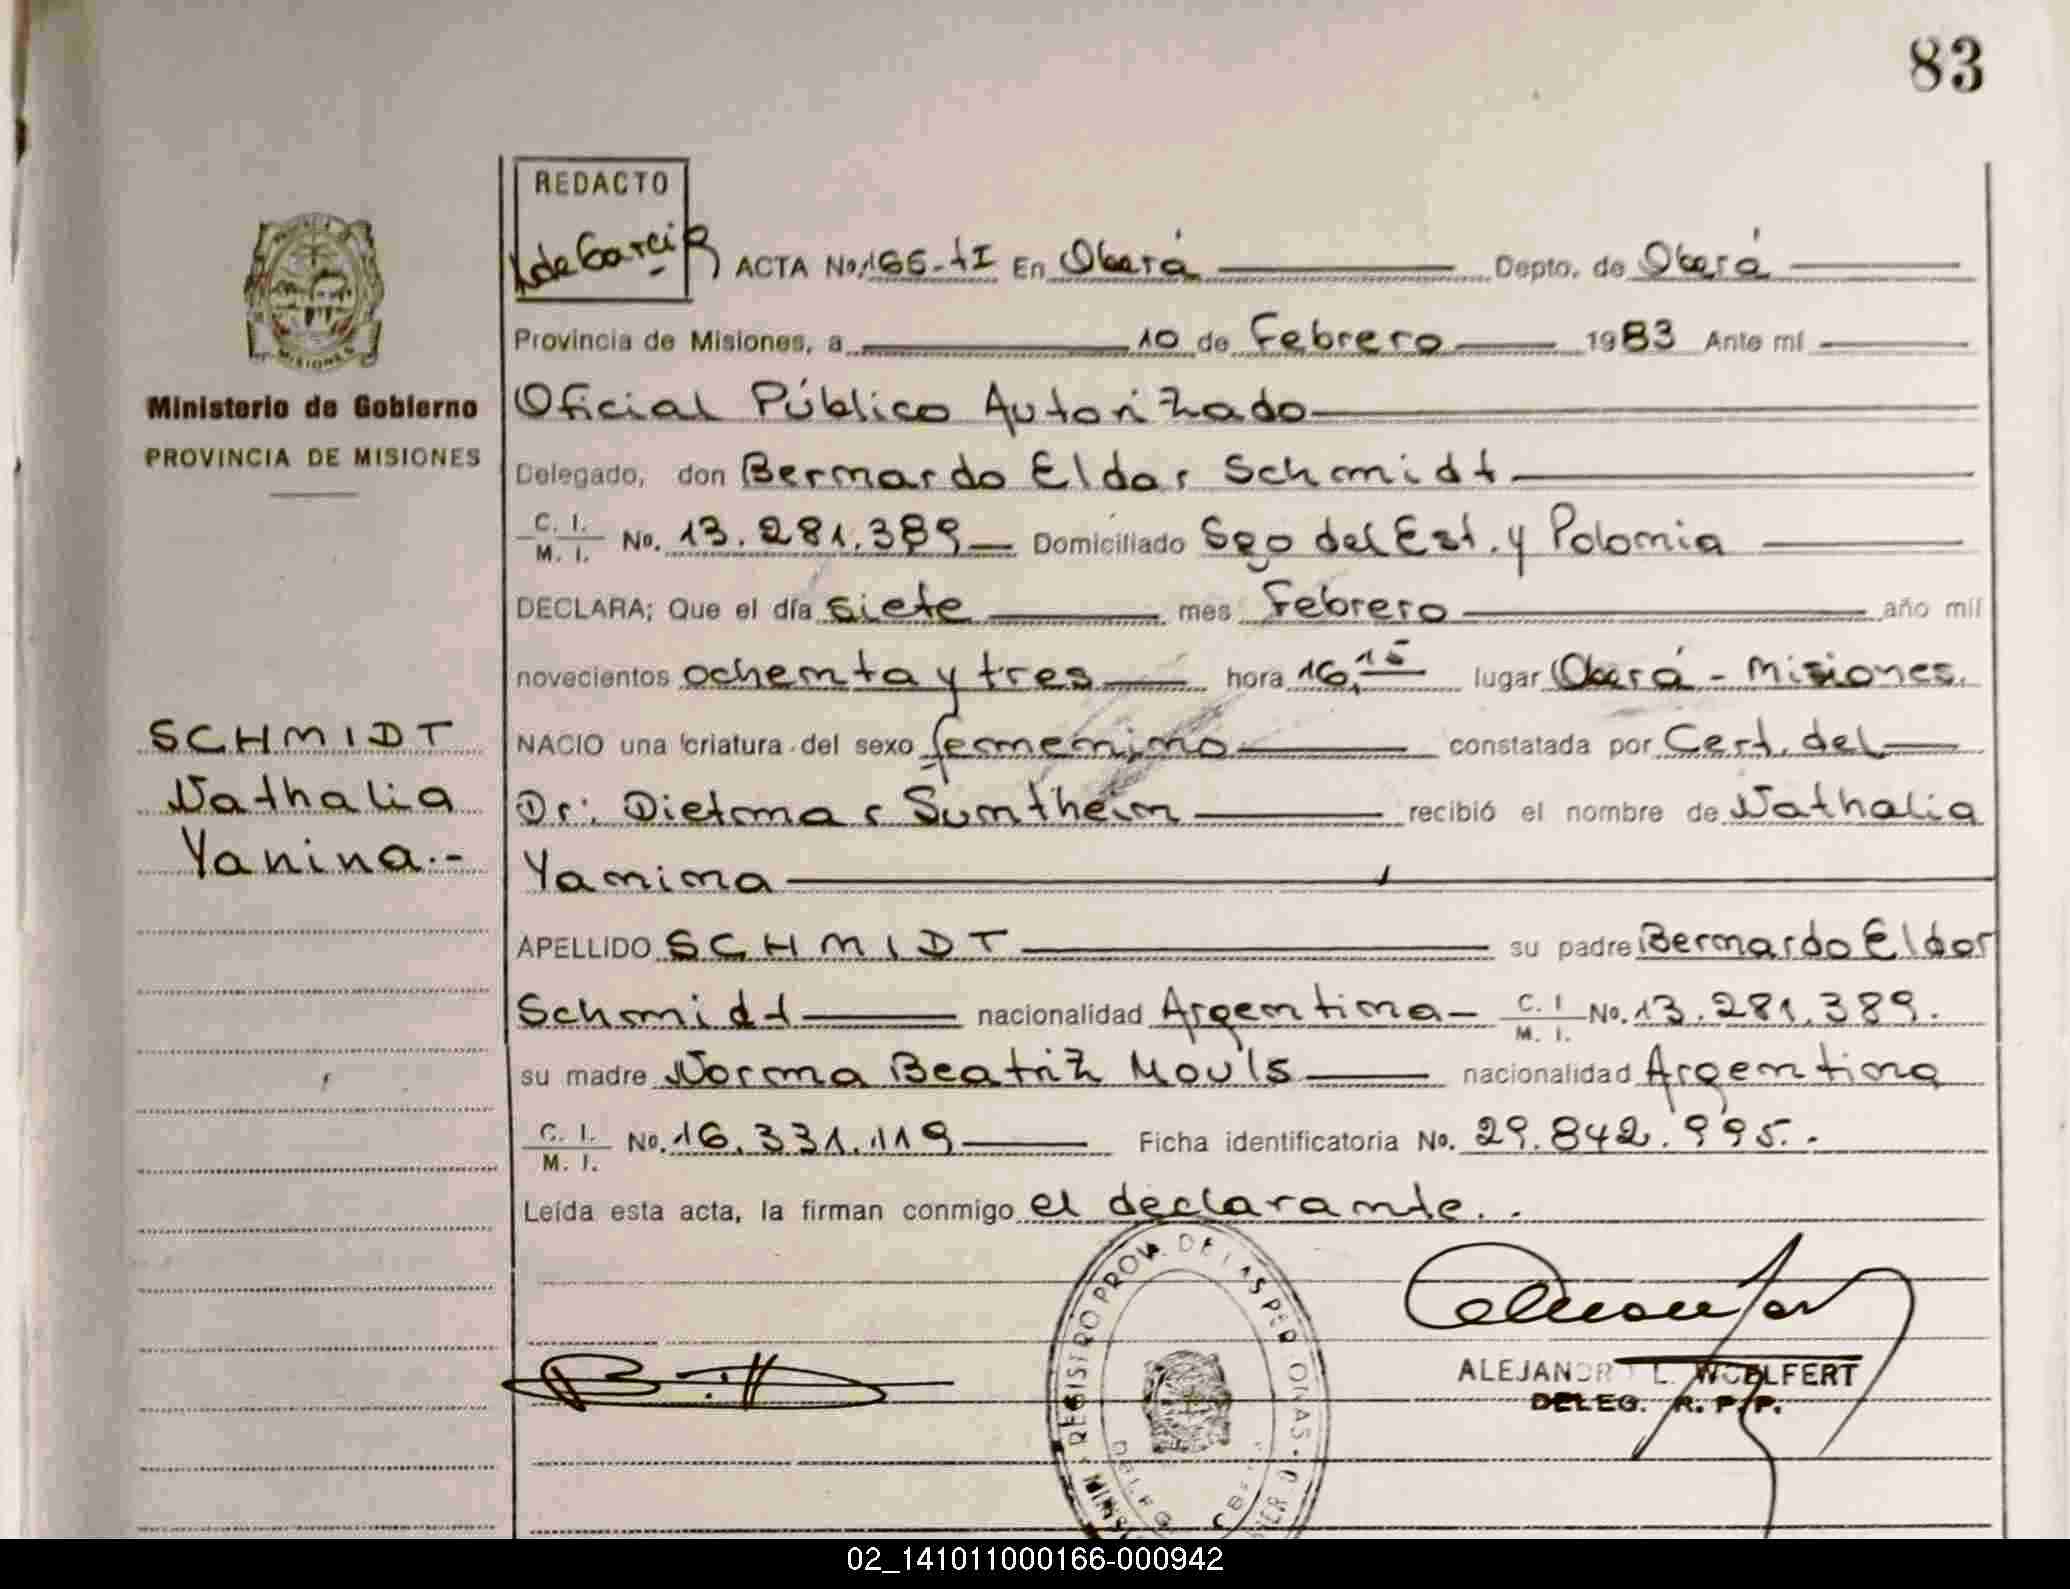 83
REDACTO
de Garcia
ACTA No. 166-tI En Oberá Depto. de Oberá
MISIONES
Provincia de Misiones, a 10 de Febrero 1983 Ante mí
Ministerio de Gobierno
PROVINCIA DE MISIONES
Oficial Público Autorizado
Delegado, don Bernardo Eldor Schmidt
C. I. M. I. No. 13.281.389 Domiciliado Sgo del Est. y Polonia
DECLARA; Que el día siete mes Febrero año mil
novecientos ochenta y tres hora 16,15 lugar Oberá - Misiones.
SCHMIDT
Nathalia
Yanina.-
NACIO una criatura del sexo femenino constatada por Cert. del
Dr: Dietmar Sumthein recibió el nombre de Nathalia
Yanina
APELLIDO SCHMIDT su padre Bernardo Eldor
Schmidt nacionalidad Argentina - C. I M. I. No. 13.281.389.
su madre Norma Beatriz Mouls nacionalidad Argentina
C. I. M. I. No. 16.331.119 Ficha identificatoria No. 29.842.995.-
Leída esta acta, la firman conmigo el declarante..
REGISTRO PROV. DE LAS PERSONAS
ALEJANDRO L. WOELFERT
DELEG. R. P. P.
02_141011000166-000942